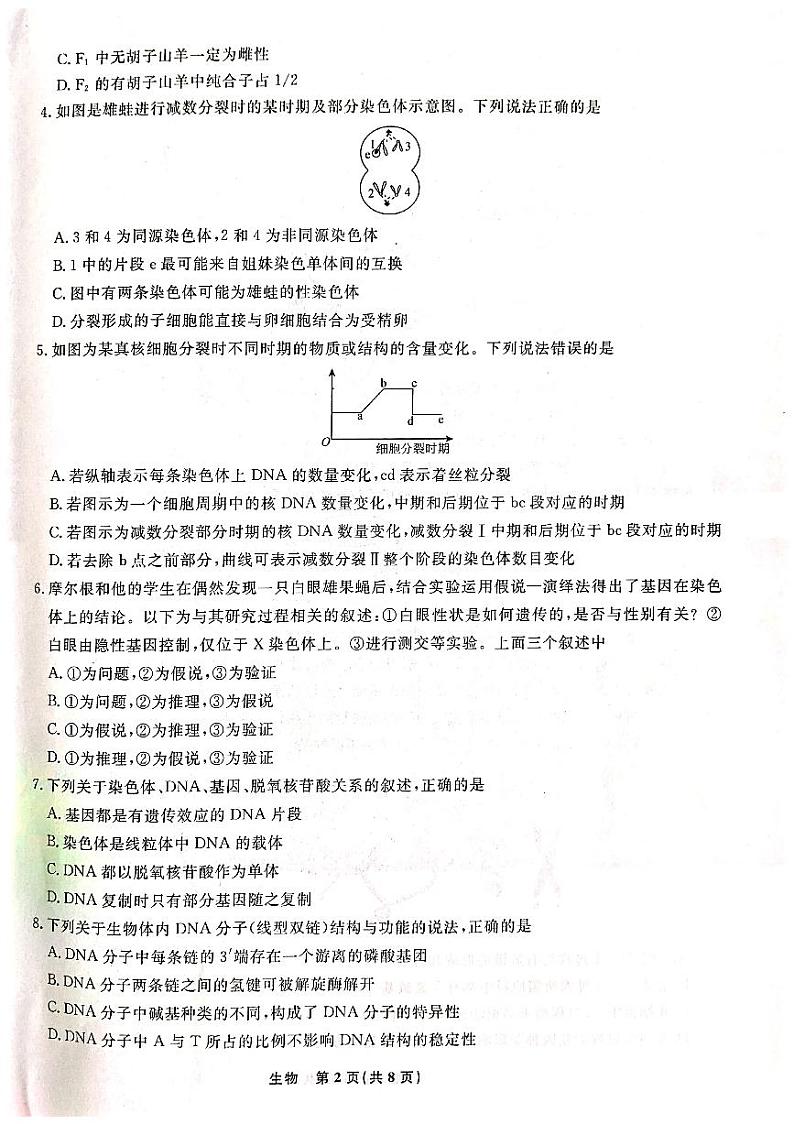 C. F₁ 中无胡子山羊一定为雌性
D. F₂ 的有胡子山羊中纯合子占 1/2
4. 如图是雄蛙进行减数分裂时的某时期及部分染色体示意图。下列说法正确的是
1
e
3
2
4
A. 3 和 4 为同源染色体,2 和 4 为非同源染色体
B. 1 中的片段 e 最可能来自姐妹染色单体间的互换
C. 图中有两条染色体可能为雄蛙的性染色体
D. 分裂形成的子细胞能直接与卵细胞结合为受精卵
5. 如图为某真核细胞分裂时不同时期的物质或结构的含量变化。下列说法错误的是
b c
a
d e
O
细胞分裂时期
A. 若纵轴表示每条染色体上 DNA 的数量变化,cd 表示着丝粒分裂
B. 若图示为一个细胞周期中的核 DNA 数量变化,中期和后期位于 bc 段对应的时期
C. 若图示为减数分裂部分时期的核 DNA 数量变化,减数分裂Ⅰ中期和后期位于 bc 段对应的时期
D. 若去除 b 点之前部分,曲线可表示减数分裂Ⅱ整个阶段的染色体数目变化
6. 摩尔根和他的学生在偶然发现一只白眼雄果蝇后,结合实验运用假说—演绎法得出了基因在染色
体上的结论。以下为与其研究过程相关的叙述:①白眼性状是如何遗传的,是否与性别有关? ②
白眼由隐性基因控制,仅位于 X 染色体上。③进行测交等实验。上面三个叙述中
A. ①为问题,②为假说,③为验证
B. ①为问题,②为推理,③为假说
C. ①为假说,②为推理,③为验证
D. ①为推理,②为假说,③为验证
7. 下列关于染色体、DNA、基因、脱氧核苷酸关系的叙述,正确的是
A. 基因都是有遗传效应的 DNA 片段
B. 染色体是线粒体中 DNA 的载体
C. DNA 都以脱氧核苷酸作为单体
D. DNA 复制时只有部分基因随之复制
8. 下列关于生物体内 DNA 分子(线型双链)结构与功能的说法,正确的是
A. DNA 分子中每条链的 3′端存在一个游离的磷酸基团
B. DNA 分子两条链之间的氢键可被解旋酶解开
C. DNA 分子中碱基种类的不同,构成了 DNA 分子的特异性
D. DNA 分子中 A 与 T 所占的比例不影响 DNA 结构的稳定性
生物 第 2 页(共 8 页)